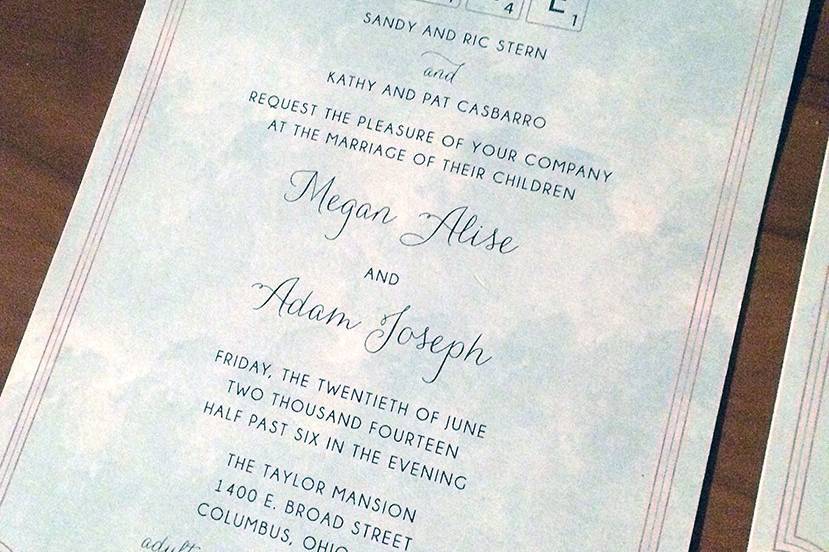 4 E 1
SANDY AND RIC STERN
and
KATHY AND PAT CASBARRO
REQUEST THE PLEASURE OF YOUR COMPANY
AT THE MARRIAGE OF THEIR CHILDREN
Megan Alise
AND
Adam Joseph
FRIDAY, THE TWENTIETH OF JUNE
TWO THOUSAND FOURTEEN
HALF PAST SIX IN THE EVENING
THE TAYLOR MANSION
1400 E. BROAD STREET
COLUMBUS, OHIO
adult